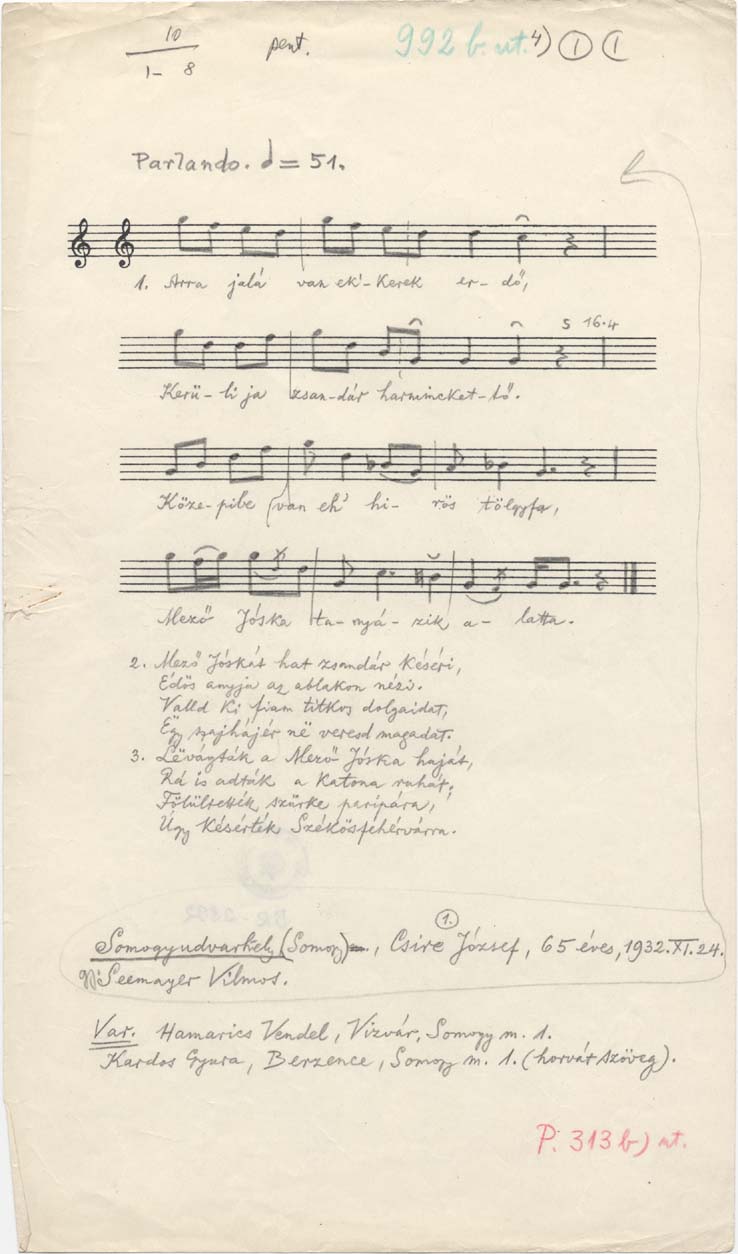 10
1- 8
pent.
992 b. ut. 4) 1 1
Parlando. = 51.
1. Arra jalá van ek'-Kerek er-dő,
5 16.4
Kerü-li ja zsan-dár harmincket-tő.
Köze-pibe van eh' hi- rös tölgyfa,
Mező Jóska ta-nyá-zik a-latta.
2. Mező Jóskát hat zsandár Késéri,
Édös anyja az ablakon nézi.
Valld ki fiam titkos dolgaidat,
Ëgy szajhájér në veresd magadat.
3. Lëvágták a Mező Jóska haját,
Rá is adták a Katona ruhát,
Fölültették szürke paripára,
Úgy Késérték Székösfehérvárra.
1.
Somogyudvarhely (Somogy), Csire József, 65 éves, 1932.XI.24.
Seemayer Vilmos.
Var. Hamarics Vendel, Vizvár, Somogy m. 1.
Kardos Gyura, Berzence, Somogy m. 1. (horvát szöveg).
P. 313 b) ut.